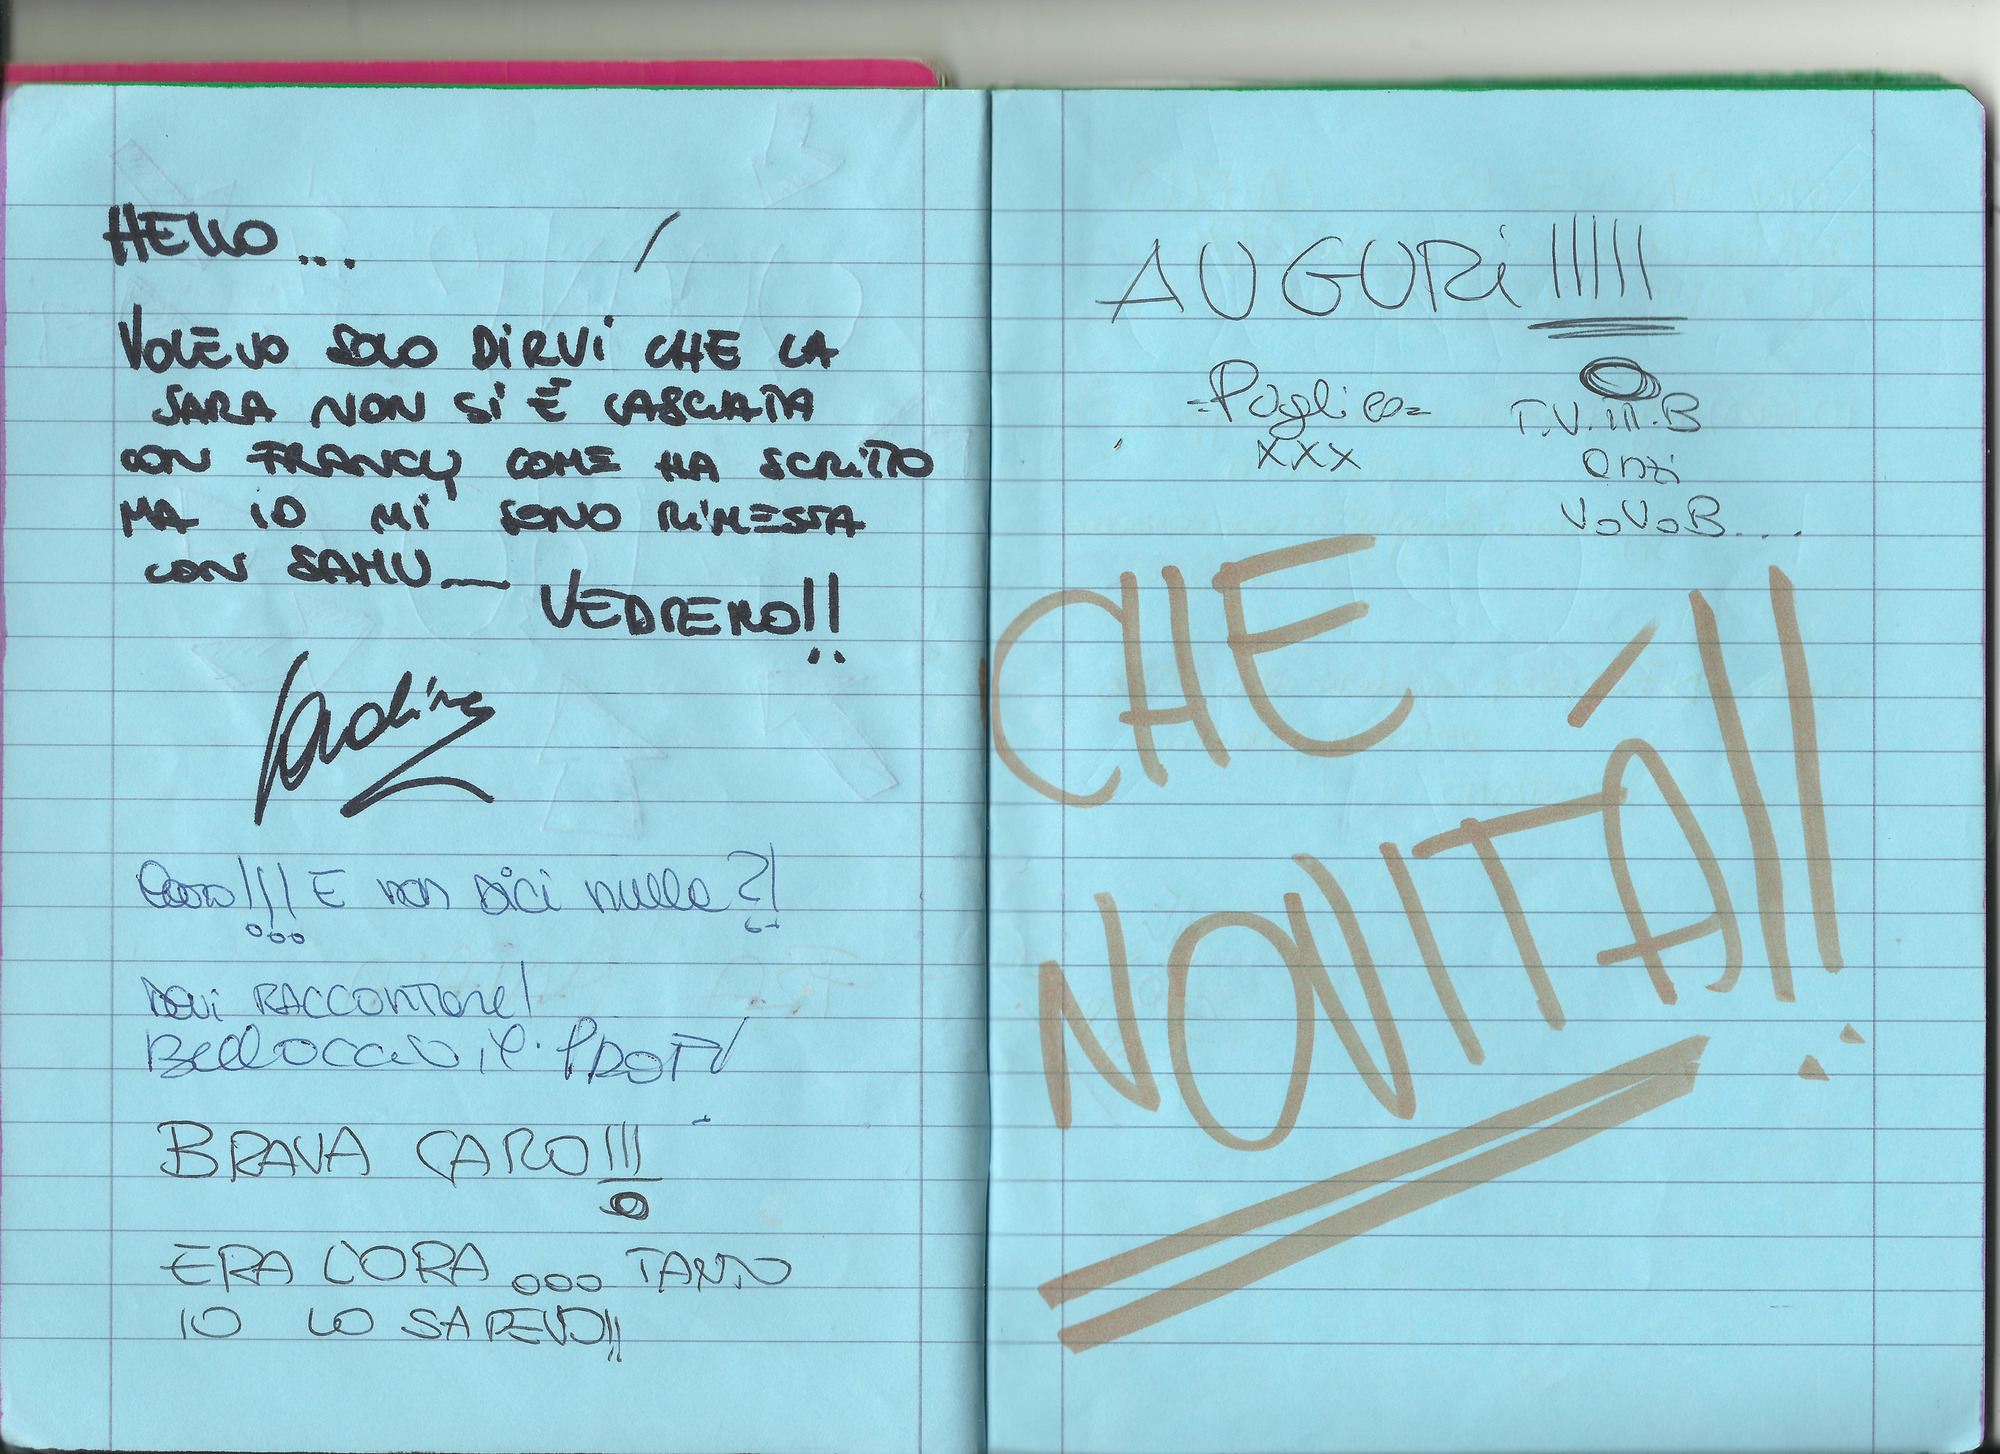 HELLO...
VOLEVO SOLO DIRVI CHE LA
SARA NON SI È LASCIATA
CON FRANCY COME HA SCRITTO
MA IO MI SONO RIMESSA
CON SAMU...
VEDREMO!!
Caro!!! E non dici nulla?!
Devi RACCONTARE!
BRAVA CARO!!!
ERA L'ORA ... TANTO
IO LO SAPEVO!!
AUGURi!!!!!
T.V.M.B
anzi
XXX
VoVoB....
CHE
NOVITÀ!!